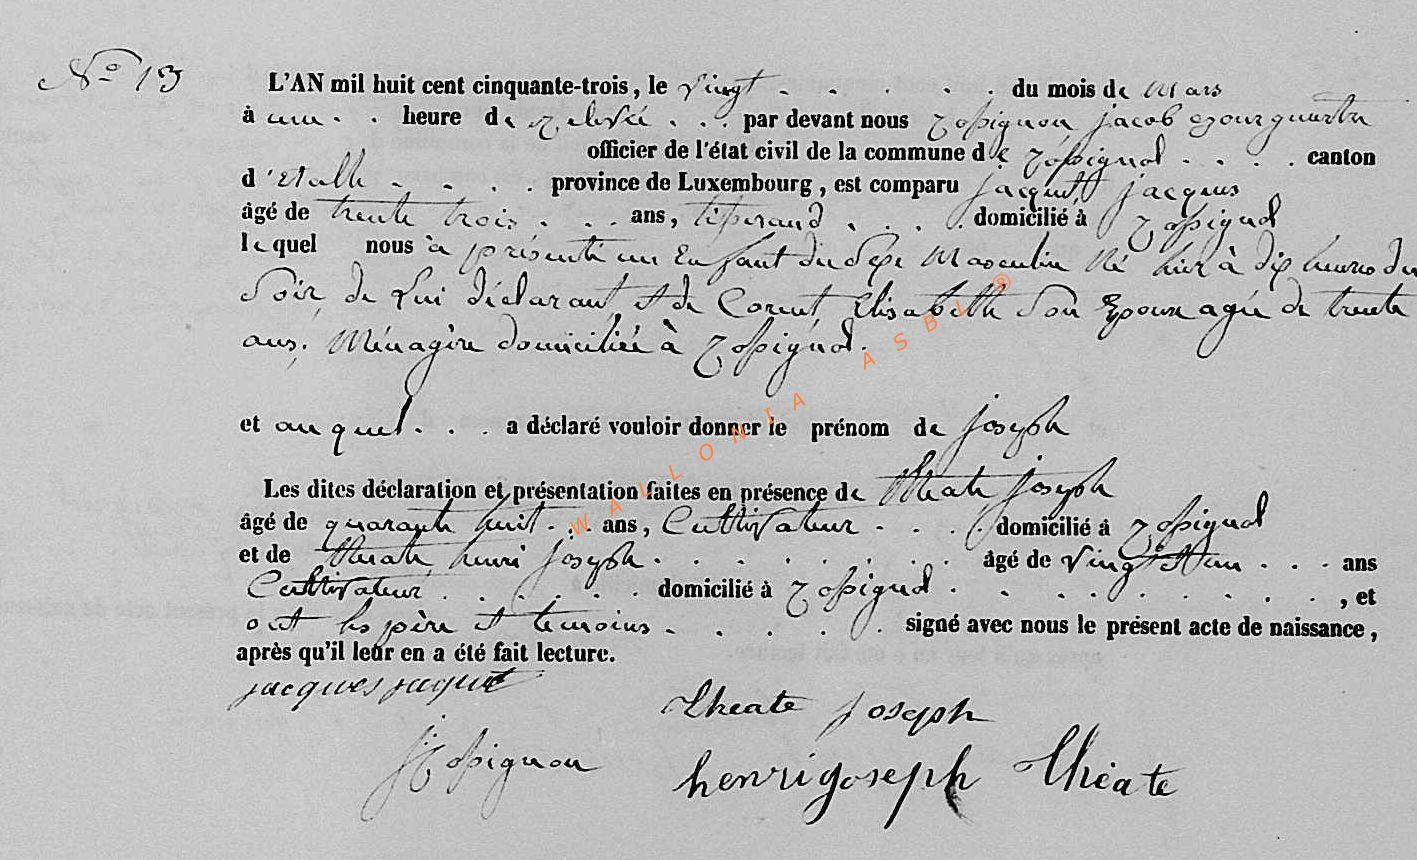 N° 13
L'AN mil huit cent cinquante-trois, le vingt . . . . . du mois de mars
à une . . heure de relevée . . . par devant nous Rossignon jacob Bourguestre
officier de l'état civil de la commune de Rossignol . . . . canton
d'Etalle . . . . . province de Luxembourg, est comparu jacquet jacques
âgé de trente trois . . . ans, tisserand . . . . domicilié à Rossignol
lequel nous à présenté un Enfant du Sexe Masculin Né hier à dix heures du
Soir de Lui déclarant et de Cornet Elisabeth Son Epouse agée de trente
ans, Ménagère domiciliée à Rossignol.
et auquel . . . a déclaré vouloir donner le prénom de joseph
Les dites déclaration et présentation faites en présence de theate joseph
âgé de quarante huit . . ans, Cultivateur . . . . domicilié à Rossignol
et de theate henri joseph . . . . . . . . . âgé de vingt et un . . . ans
Cultivateur . . . . . . domicilié à Rossignol . . . . . . . . . , et
ont les père et temoins . . . . . . signé avec nous le présent acte de naissance,
après qu'il leur en a été fait lecture.
jacques jaquet
theate joseph
J Rossignon
henri joseph théate
WALLONIA ASBL ®